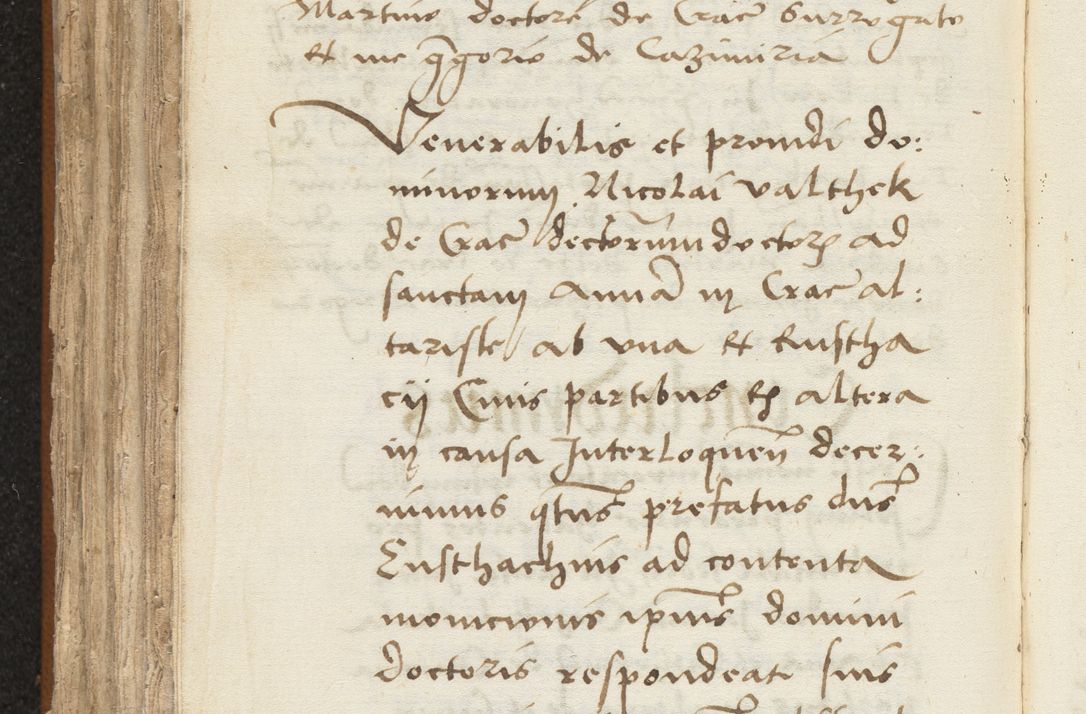 Martino doctore de Crac Surrogato
et me gregorio de Cazimiria
Venerabilis et prouidi do:
minorum Nicolai Valthek
de Crac decretorum doctor ad
sanctam Anna in Crac al:
tariste ab vna et Eustha
cii Ciuis partibus ex altera
in causa Interloquen decer:
nimus qtus prefatus dns
Eusthachius ad contenta
monicionis ipius domini
doctoris respondeat suis